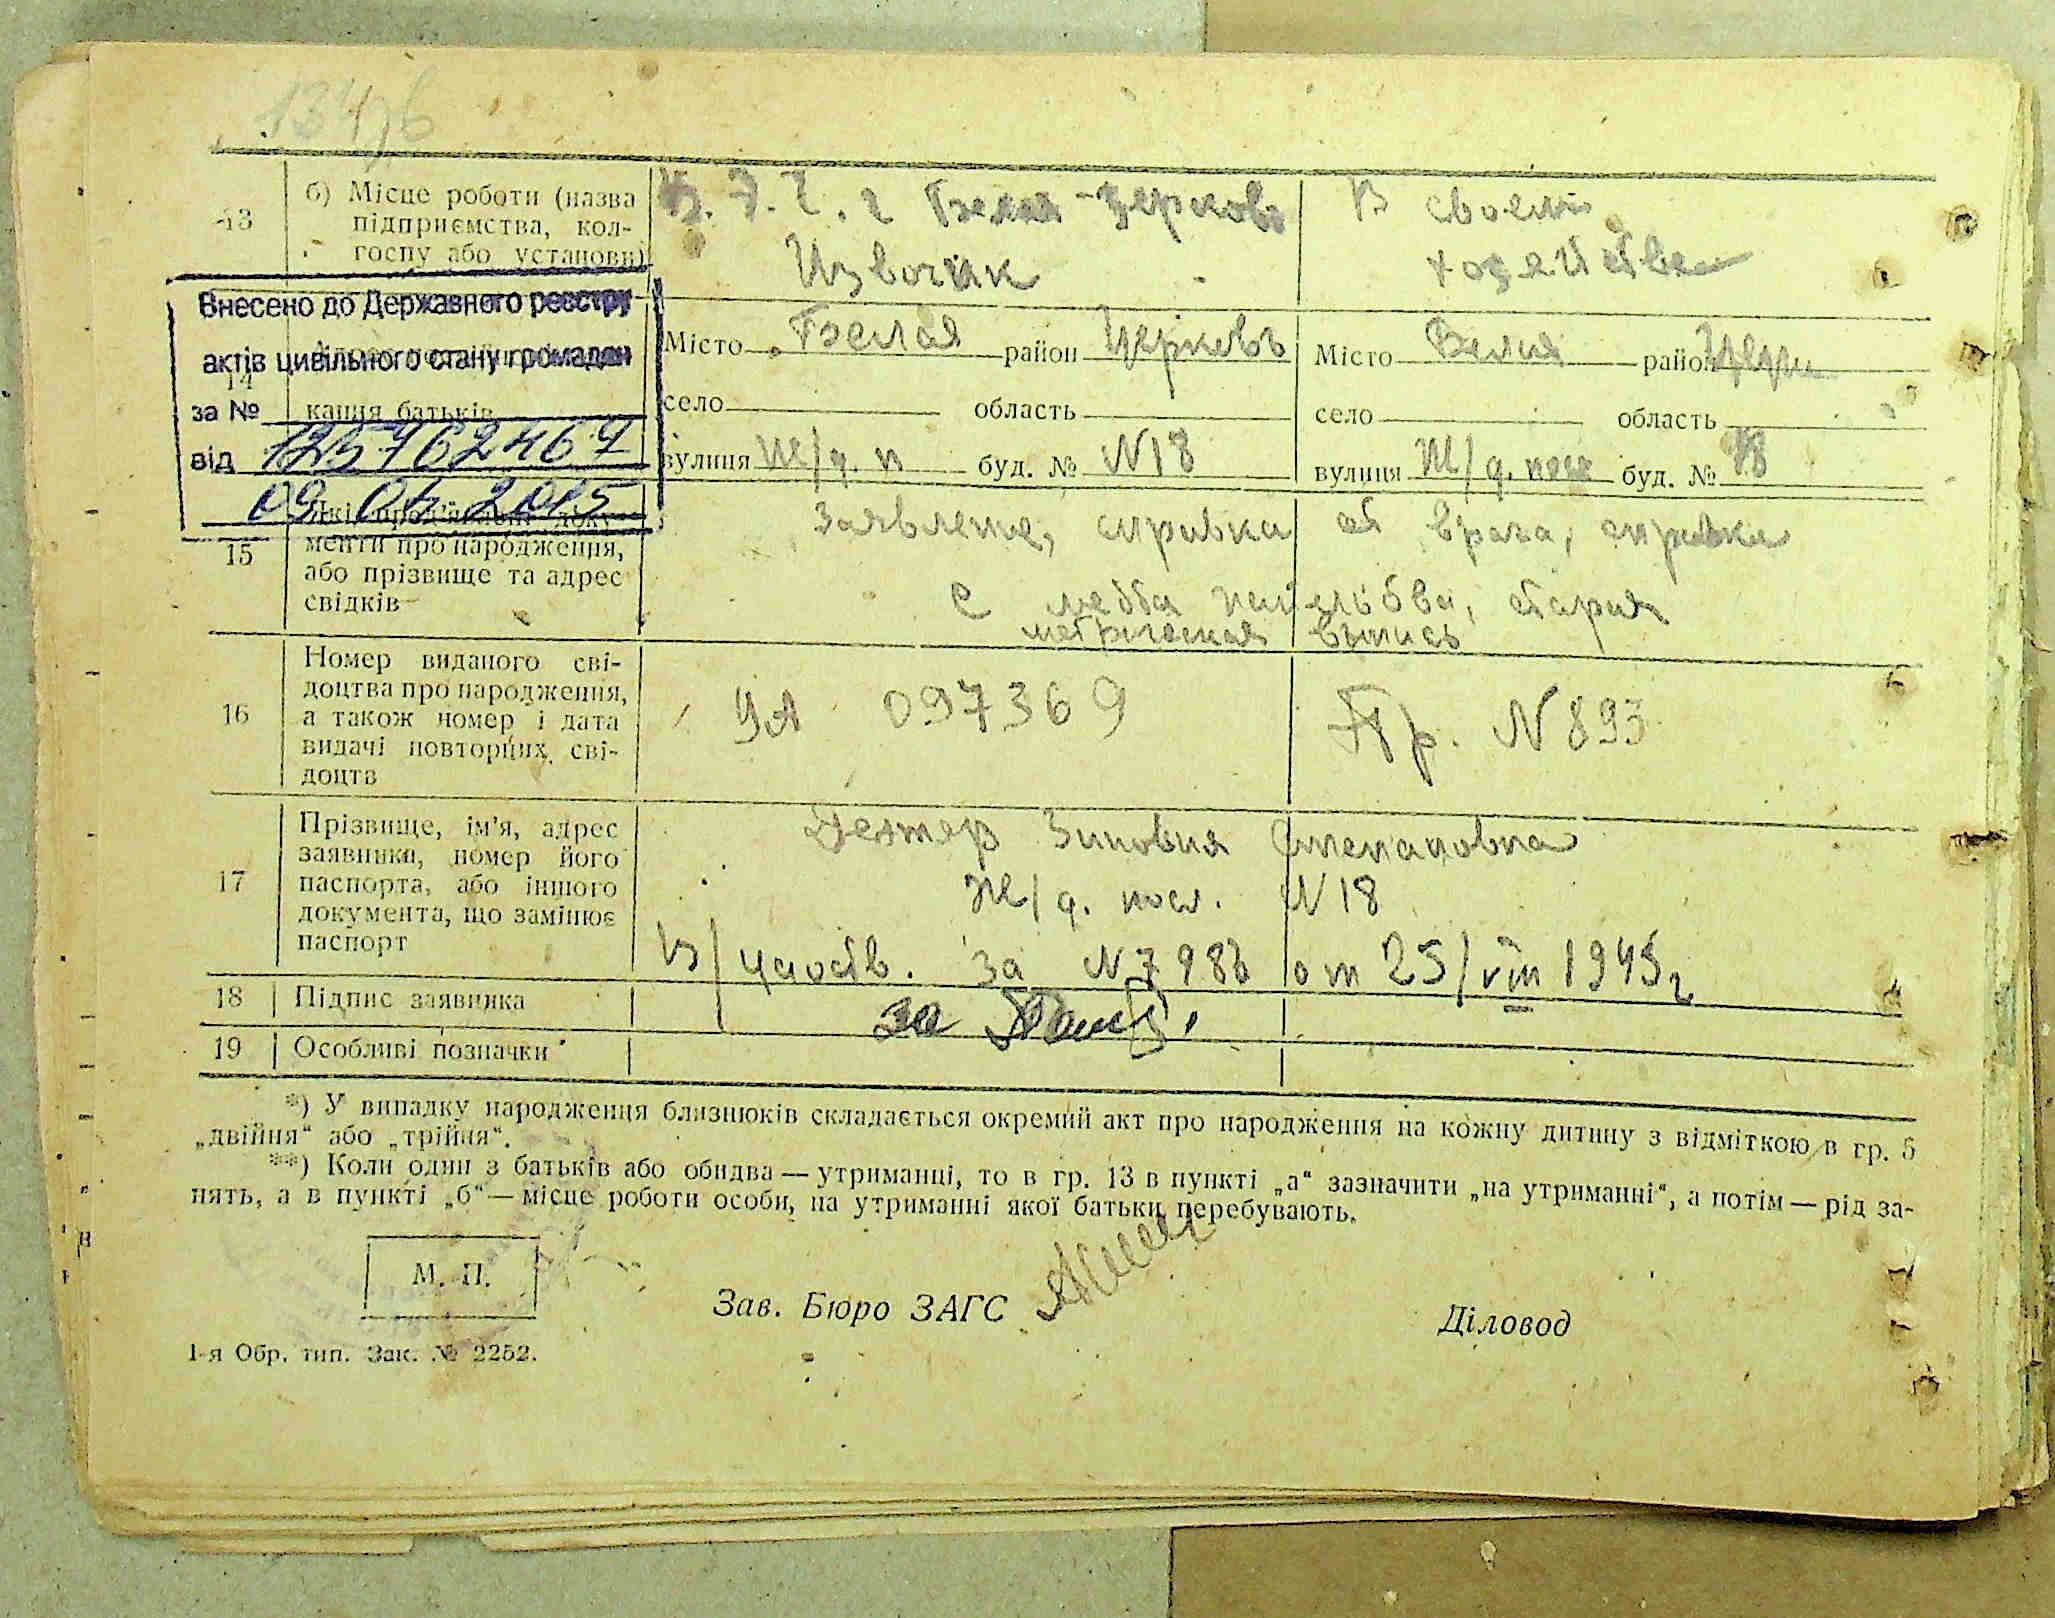 134/6
13
б) Місце роботи (назва
підприємства, кол-
госпу або установи)
г Белая-Церковь
Извочик
В своем
хозяйстве
Внесено до Державного реєстру
актів цивільного стану громадян
за №
від 125762467
09. 2015
14
кання батьків
Місто Белая район Церковь
село область
вулиця Ж/д. п буд. № N18
Місто Белая район Церк
село область
вулиця Ж/д. пос буд. № 18
15
які пред'явлені доку-
менти про народження,
або прізвище та адрес
свідків
Заявление, справка от врача, справка
с места жительства, старая
метрическая выпись
16
Номер виданого сві-
доцтва про народження,
а також номер і дата
видачі повторних сві-
доцтв
УА 097369
Пр. N 893
17
Прізвище, ім'я, адрес
заявника, номер його
паспорта, або іншого
документа, що замінює
паспорт
Зиновия Степановна
Ж/д. посл. N 18
В/ за N 798 от 25/VIII 1945 г
18
Підпис заявника
за
19
Особливі позначки
*) У випадку народження близнюків складається окремий акт про народження на кожну дитину з відміткою в гр. 5
„двійня“ або „трійня“.
**) Коли один з батьків або обидва — утриманці, то в гр. 13 в пункті „а“ зазначити „на утриманні“, а потім — рід за-
нять, а в пункті „б“ — місце роботи особи, на утриманні якої батьки перебувають.
М. П.
Зав. Бюро ЗАГС
Діловод
1-я Обр. тип. Зак. № 2252.